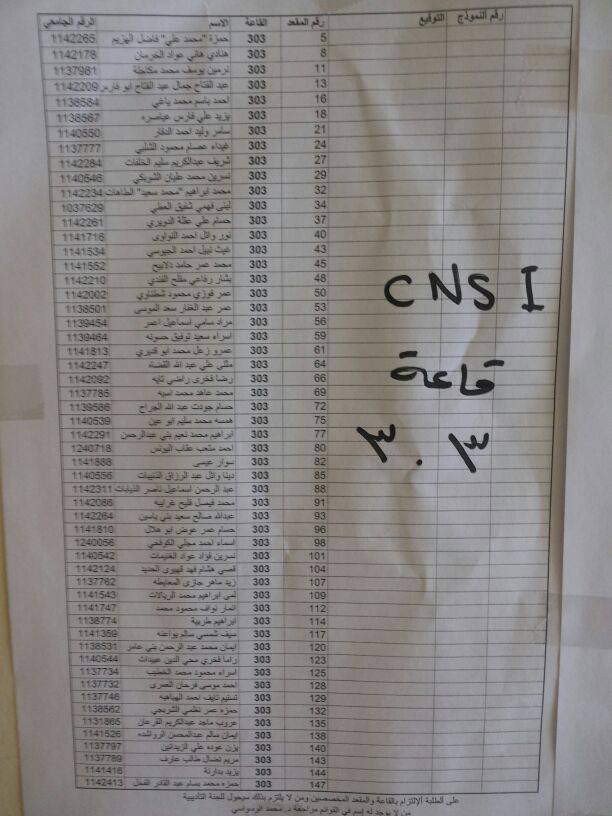 رقم النموذج التوقيع رقم المقعد القاعة الاسم الرقم الجامعي
5 303 حمزة "محمد علي" فاضل الهزيم 1142265
8 303 هنادي هاني عواد الخرمان 1142178
11 303 نرمين يوسف محمد مكاحلة 1137981
13 303 عبد الفتاح جمال عبد الفتاح ابو فارس 1142209
16 303 احمد باسم محمد ياغي 1138584
18 303 يزيد علي فارس عياصره 1138567
21 303 سامر وليد احمد الدقار 1140550
24 303 غيداء عصام محمود الشلبي 1137777
27 303 شريف عبدالكريم سليم الخلفات 1142284
29 303 نسرين محمد عليان الشريكي 1140546
32 303 محمد ابراهيم "محمد سعيد" الطاهات 1142234
34 303 لبنى فهمي شفيق العلي 1037629
37 303 حسام علي عقلة الدويري 1142261
40 303 نور وائل احمد النواوى 1141716
43 303 غيث نبيل احمد الجيوسي 1141534
45 303 محمد عمر حامد دلابيح 1141552
48 303 بشار رفاعي مفلح الفندي 1142210
50 303 عمر فوزي محمود شطناوي 1142002
53 303 عمر عبد الغفار سعد الموسى 1138501
56 303 مراد سامي اسماعيل اعمر 1139454
59 303 اسراء سعيد توفيق حسونه 1139464
61 303 عمرو زعل محمد ابو قديري 1141813
64 303 مثنى علي عبد الله القضاه 1142247
66 303 رضا فخرى راضي تايه 1142092
69 303 محمد عاهد محمد اسيه 1137785
72 303 حسام جودت عبد الله الجراح 1139586
75 303 همسه محمد سليم ابو عين 1140539
77 303 ابراهيم محمد نعيم بني عبدالرحمن 1142291
80 303 احمد متعب عقاب اليونس 1240718
82 303 سوار عيسى 1141888
85 303 دينا وائل عبد الرزاق الذنيبات 1140556
88 303 عبد الرحمن اسماعيل ناصر الذيابات 1142311
91 303 محمد فيصل فليح غرايبه 1142086
93 303 عبدالله صالح سعيد بني ياسين 1142264
96 303 حسام عمر عوض ابو هلال 1141810
98 303 اسماء احمد مجلي الكوفحي 1240056
101 303 نسرين فؤاد عواد الغنيمات 1140542
104 303 قصي هشام فهد قهيوى الحديد 1142124
107 303 زيد ماهر جازى المعايطه 1137762
109 303 لمى ابراهيم محمد الربالات 1141543
112 303 انمار نواف محمود محمد 1141747
114 303 ابراهيم طربية 1138774
117 303 سيف شمسي سالم بواعنه 1141359
120 303 ايمان محمد عبد الرحمن بني عامر 1138531
123 303 راما فخري محي الدين عبيدات 1140544
125 303 اسراء محمود محمد الخطيب 1137734
128 303 احمد موسى فرحان العمرى 1137732
129 303 تسنيم نايف احمد الهياهبه 1137746
132 303 حمزه عمر نظمي الشربجي 1138562
135 303 عروب ماجد عبدالكريم القرعان 1131865
138 303 ايمان سالم عبدالمحسن الرواشده 1141526
140 303 يزن عوده علي الزيدانين 1137797
143 303 مريم نضال طالب عارف 1137789
144 303 يزيد بدارنة 1141416
147 303 حمزه محمد بسام عبد القادر الفحل 1142413
CNS I
قاعة
٣٠٣
على الطلبة الالتزام بالقاعة والمقعد المخصصين ومن لا يلتزم بذلك سيحول للجنة التأديبية
من لا يوجد له إسم في القوائم مراجعة د. محمد الروسان